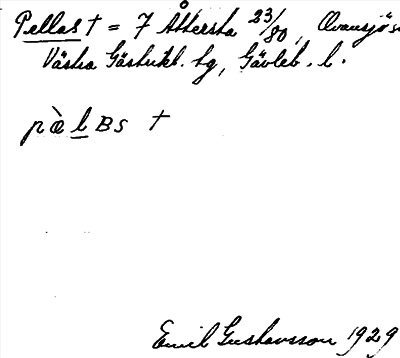 Pellas † = 7 Åttersta 23/80, Ovansjö s
Västra Gästrikl. tg, Gävleb. l.
pæ̀lBs †
Emil Gustavsson 1929